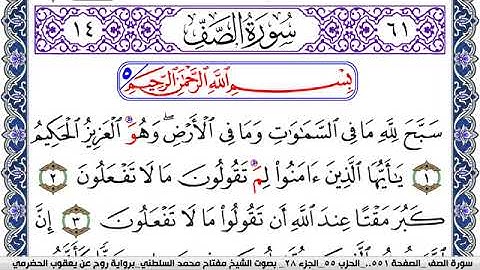 ٦١ سُورَةُ الصَّفِّ ١٤
بِسْمِ اللَّهِ الرَّحْمَٰنِ الرَّحِيمِ
سَبَّحَ لِلَّهِ مَا فِي السَّمَٰوَٰتِ وَمَا فِي الْأَرْضِ ۖ وَهُوَ الْعَزِيزُ الْحَكِيمُ
١ يَٰٓأَيُّهَا الَّذِينَ ءَامَنُوا لِمَ تَقُولُونَ مَا لَا تَفْعَلُونَ ٢
كَبُرَ مَقْتًا عِندَ اللَّهِ أَن تَقُولُوا مَا لَا تَفْعَلُونَ ٣ إِنَّ
سورة الصف _الصفحة ٥٥١_ الحزب ٥٥_ الجزء ٢٨_ بصوت الشيخ مفتاح محمد السلطني_ برواية روح عن يعقوب الحضرمي